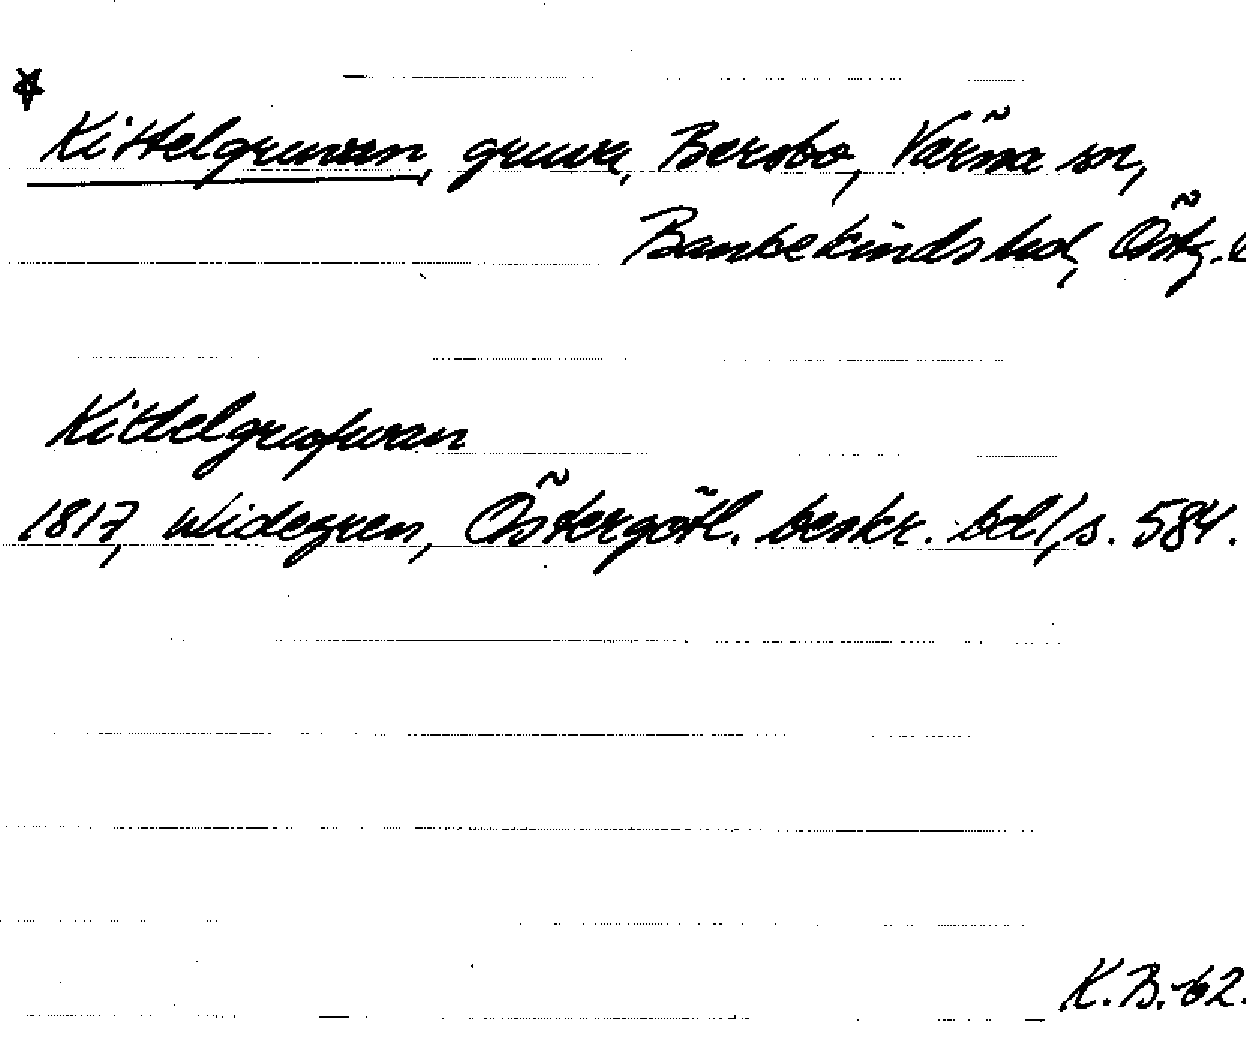 Kittelgruvan, gruva, Bersbo, Värna sn,
Bankekinds hd, Östg.
Kittelgrufwan
1817, Widegren, Östergötl. beskr. bd 1, s. 584.
K.B.-62.